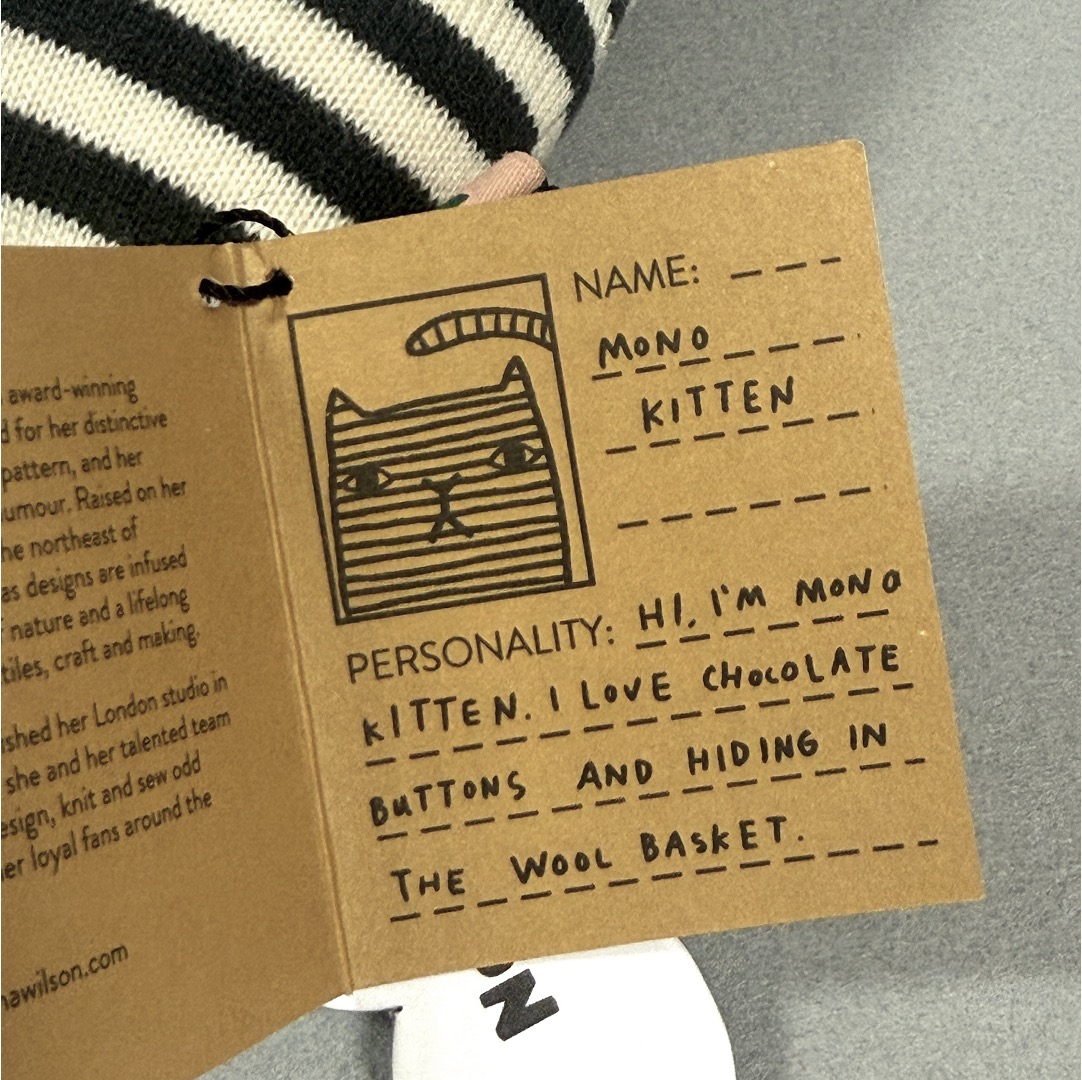 award-winning
for her distinctive
pattern, and her
Raised on her
northeast of
designs are infused
nature and a lifelong
craft and making.
her London studio in
she and her talented team
knit and sew odd
loyal fans around the
NAME:
MONO
KITTEN
PERSONALITY: HI, I'M MONO
KITTEN. I LOVE CHOCOLATE
BUTTONS AND HIDING IN
THE WOOL BASKET.